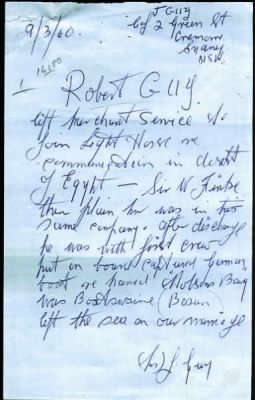 J Guy
C/o 2 Green St
Cremorne
Sydney
NSW
9/3/60.
Robert Guy
left Merchant Service to
join Light Horse
communication in desert
of Egypt — Sir W
then plain Mr was in his
same company. after discharge
he was with first crew
put on board captured German
boat re named Hobsons Bay
was Boatswaine (Bosun)
left the sea on our marriage
Guy